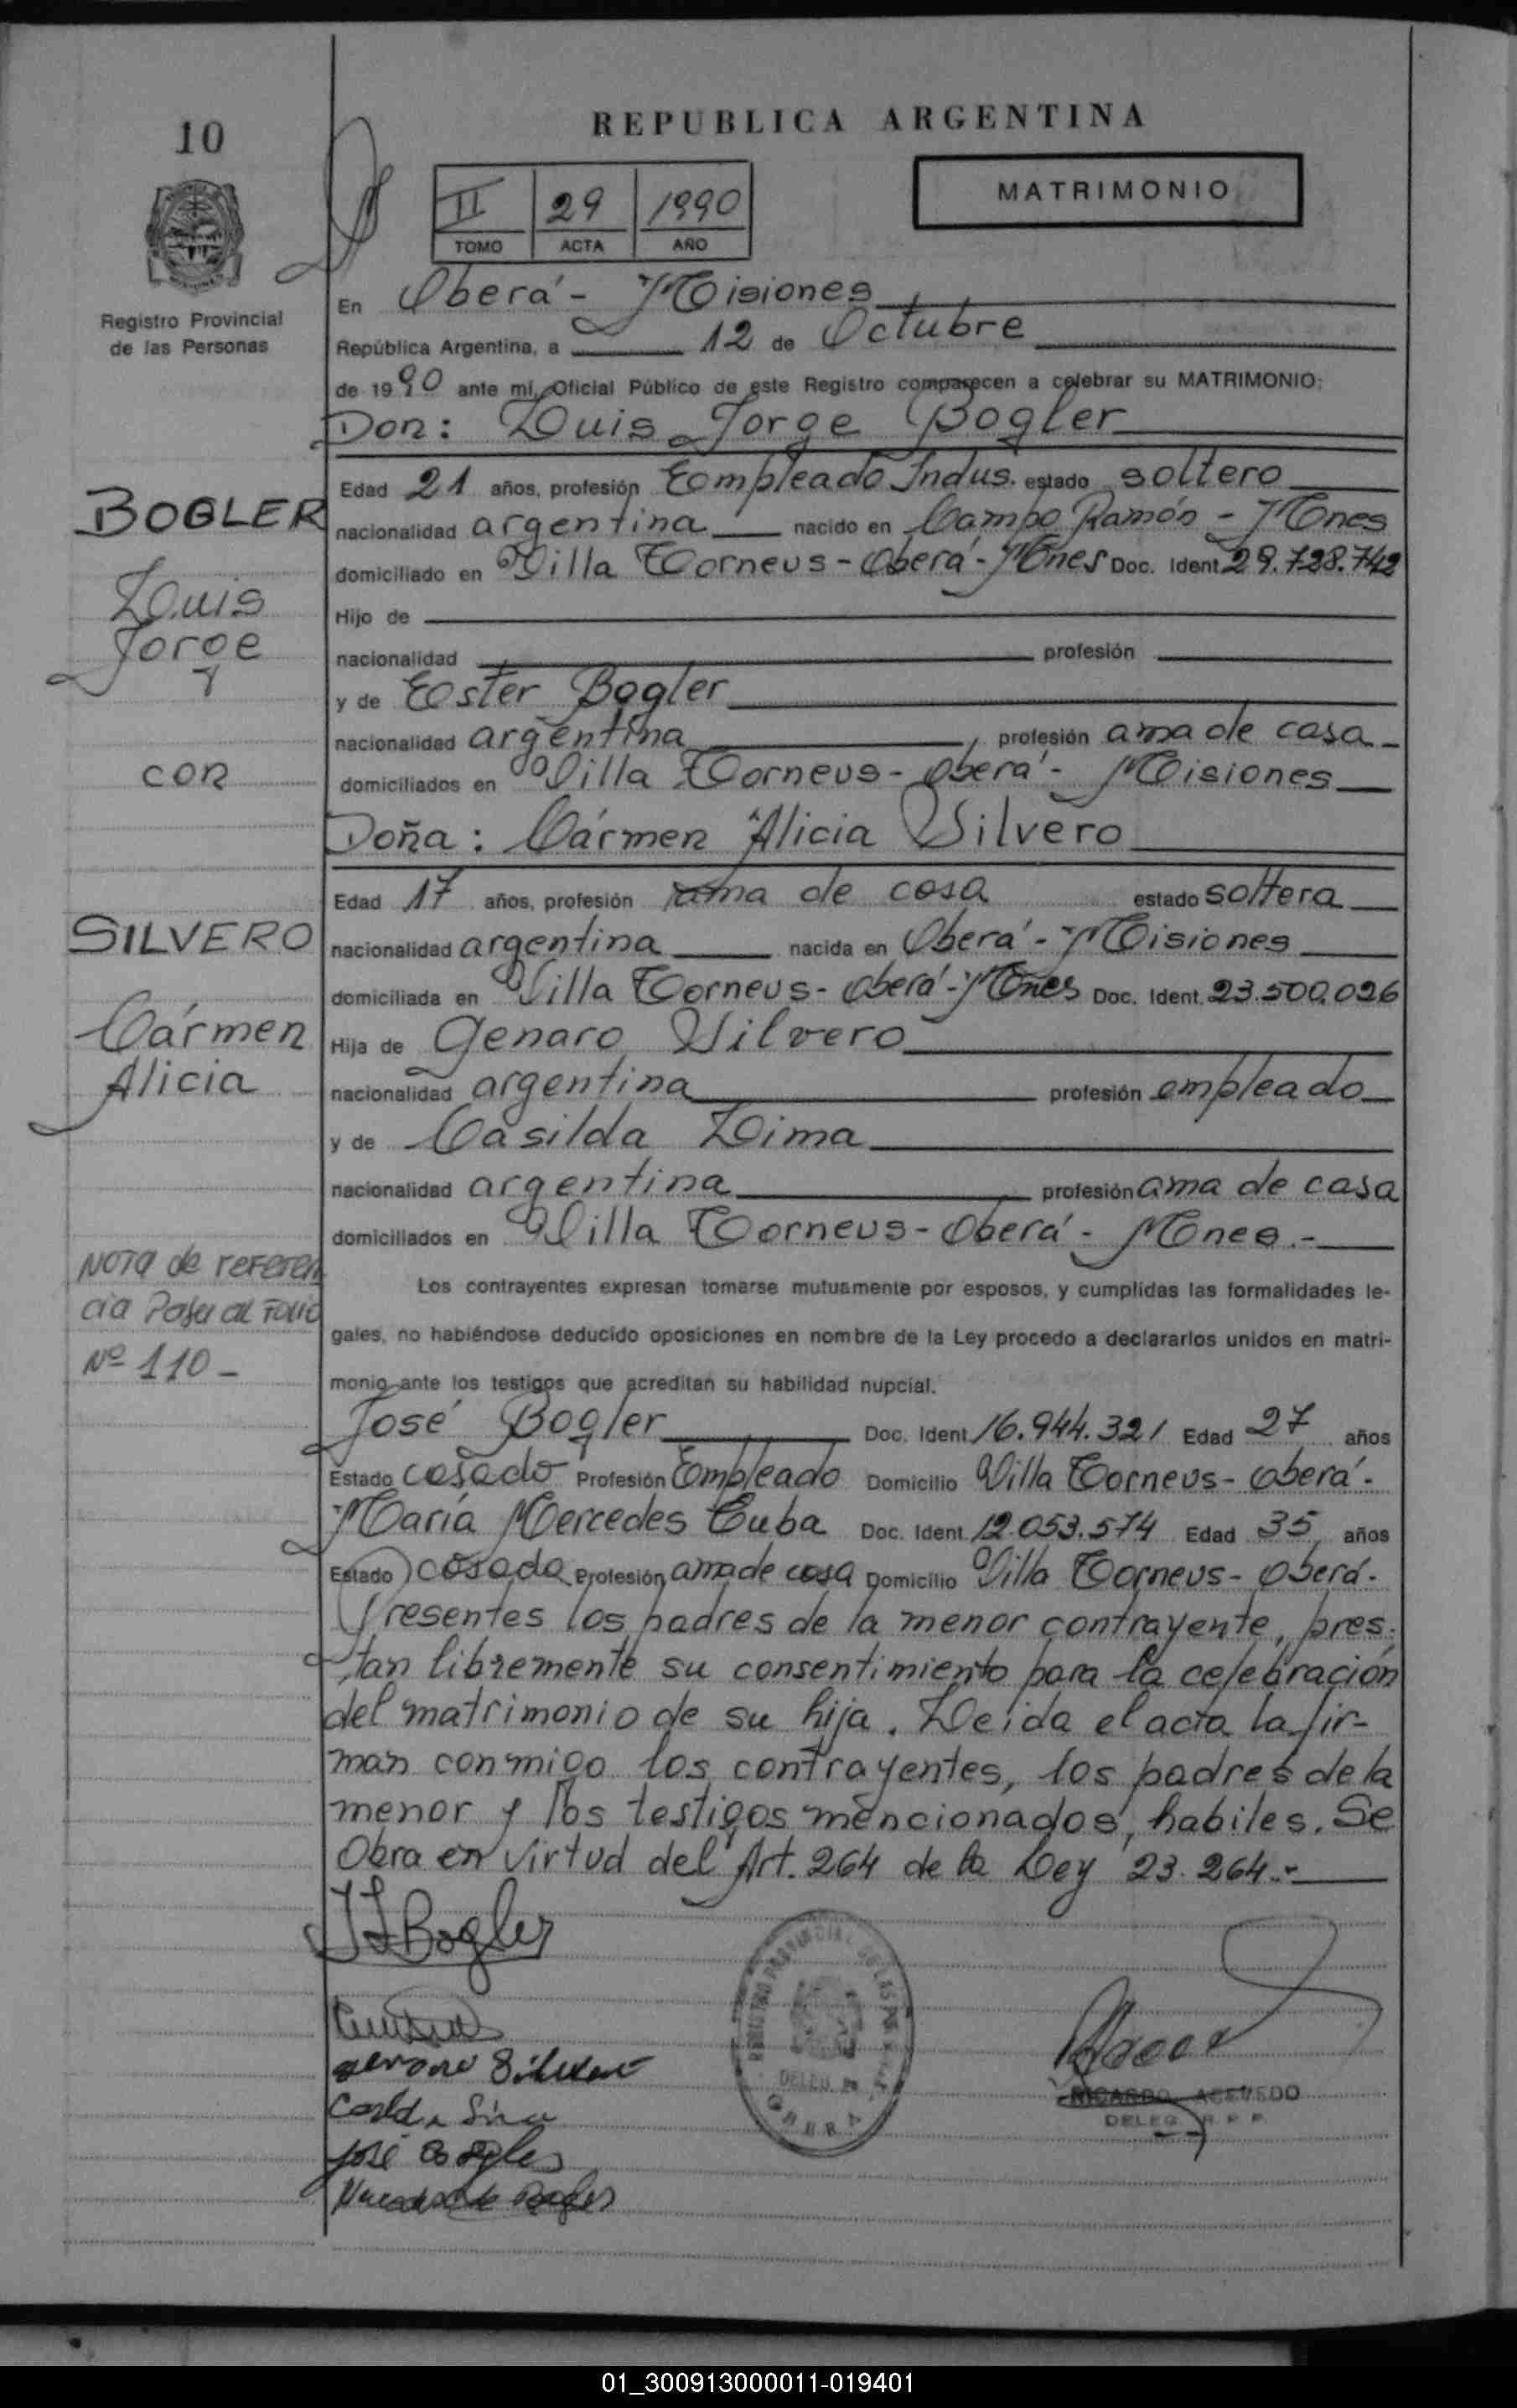 10
REPUBLICA ARGENTINA
MATRIMONIO
II 29 1990
TOMO ACTA AÑO
Registro Provincial
de las Personas
En Oberá - Misiones
República Argentina, a 12 de Octubre
de 1990 ante mi, Oficial Público de este Registro comparecen a celebrar su MATRIMONIO:
Don: Luis Jorge Bogler
Edad 21 años, profesión Empleado Indus. estado soltero
BOGLER
nacionalidad argentina nacido en Campo Ramón - Mnes
domiciliado en Villa Torneus - Oberá - Mnes Doc. Ident. 29.728.742
Luis
Hijo de
Jorge
nacionalidad profesión
y de Ester Bogler
nacionalidad argentina, profesión ama de casa
con
domiciliados en Villa Torneus - Oberá - Misiones
Doña: Cármen Alicia Silvero
Edad 17 años, profesión ama de casa estado soltera
SILVERO
nacionalidad argentina nacida en Oberá - Misiones
domiciliada en Villa Torneus - Oberá - Mnes Doc. Ident. 23.500.026
Cármen
Hija de Genaro Silvero
Alicia
nacionalidad argentina profesión empleado
y de Casilda Lima
nacionalidad argentina profesión ama de casa
domiciliados en Villa Torneus - Oberá - Mnes.-
NOTA de referen
cia Pasa al Folio
Nº 110 -
Los contrayentes expresan tomarse mutuamente por esposos, y cumplidas las formalidades le-
gales, no habiéndose deducido oposiciones en nombre de la Ley procedo a declararlos unidos en matri-
monio ante los testigos que acreditan su habilidad nupcial.
José Bogler Doc. Ident. 16.944.321 Edad 27 años
Estado casado Profesión Empleado Domicilio Villa Torneus - Oberá -
María Mercedes Cuba Doc. Ident. 12.053.574 Edad 35 años
Estado casada Profesión ama de casa Domicilio Villa Torneus - Oberá -
Presentes los padres de la menor contrayente, pres-
tan libremente su consentimiento para la celebración
del matrimonio de su hija. Leida el acta la fir-
man conmigo los contrayentes, los padres de la
menor y los testigos mencionados, habiles. Se
Obra en virtud del Art. 264 de la Ley 23.264.-
Bogler
REGISTRO PROVINCIAL DE LAS PER
DELEG.
OBERA
José Bogler
RICARDO ACEVEDO
DELEG. R. P. P.
01_300913000011-019401